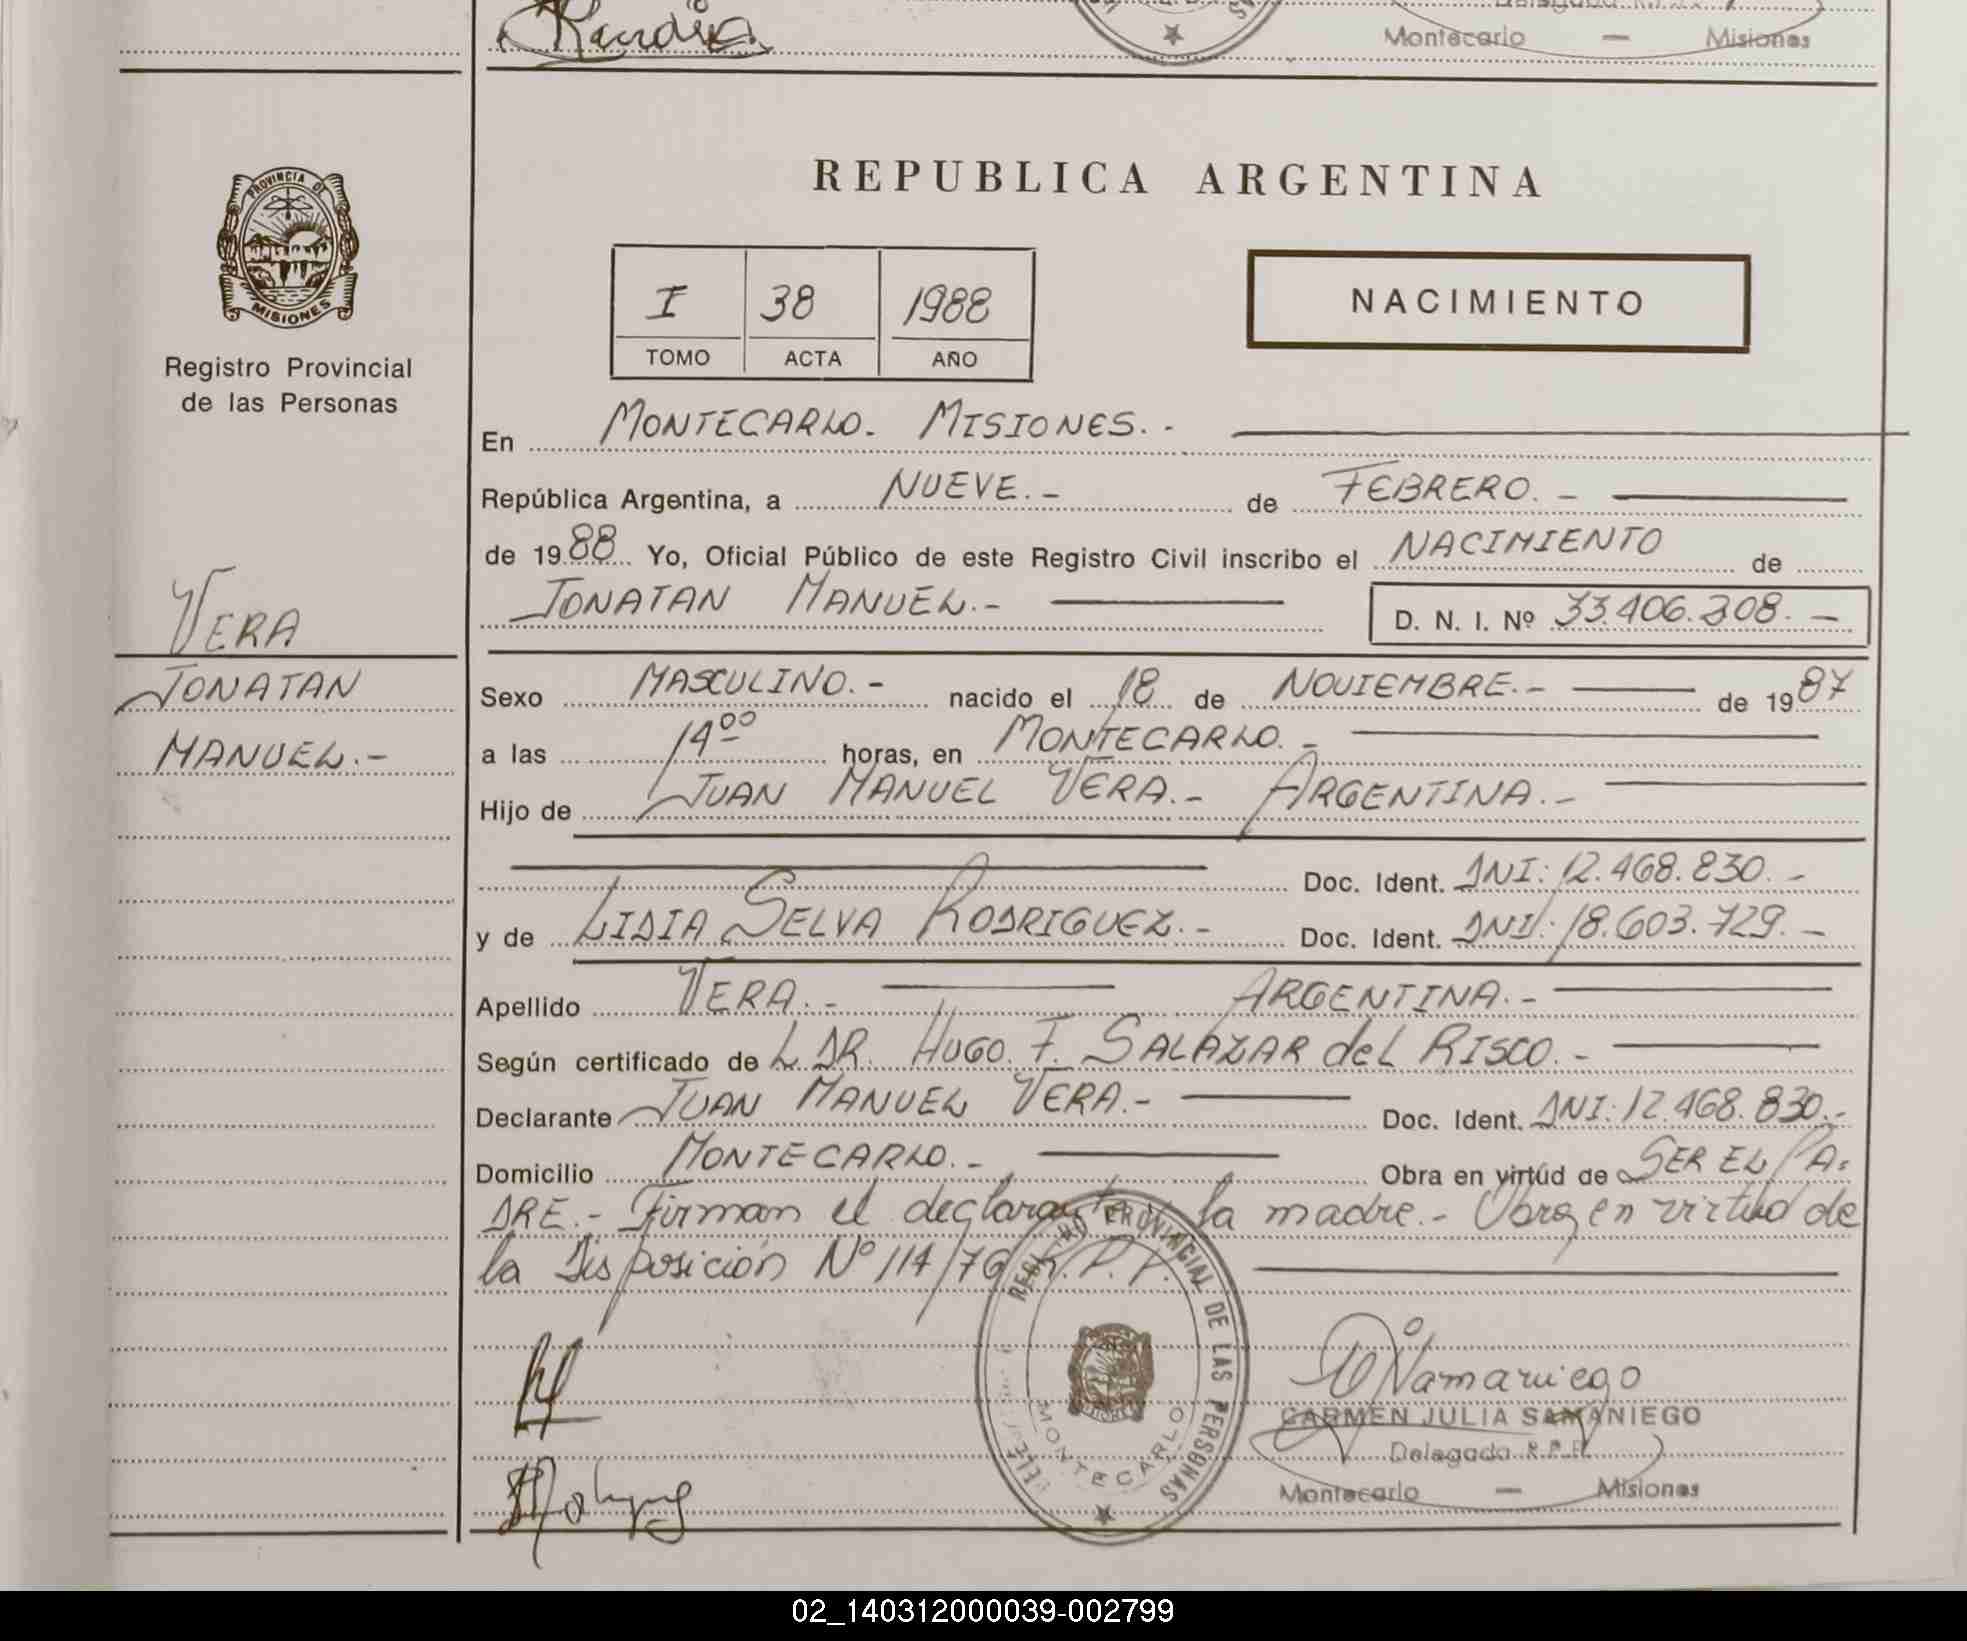 Montecarlo — Misiones
REPUBLICA ARGENTINA
PROVINCIA DE
MISIONES
Registro Provincial
de las Personas
I 38 1988
TOMO ACTA AÑO
NACIMIENTO
En MONTECARLO. MISIONES.-
República Argentina, a NUEVE.- de FEBRERO.-
de 1988 Yo, Oficial Público de este Registro Civil inscribo el NACIMIENTO de
JONATAN MANUEL.- D. N. I. Nº 33.406.308.-
VERA
JONATAN
MANUEL.-
Sexo MASCULINO.- nacido el 18 de NOVIEMBRE.- de 1987
a las 14 00 horas, en MONTECARLO.-
Hijo de JUAN MANUEL VERA.- ARGENTINA.-
Doc. Ident. DNI: 12.468.830.-
y de LIDIA SELVA RODRIGUEZ.- Doc. Ident. DNI: 18.603.729.-
Apellido VERA.- ARGENTINA.-
Según certificado de L DR. HUGO. F. SALAZAR del RISCO.-
Declarante JUAN MANUEL VERA.- Doc. Ident. DNI: 12.468.830.-
Domicilio MONTECARLO.- Obra en virtud de SER EL PA=
DRE.- Firman el declarante y la madre.- Obra en virtud de
la Disposición Nº 114/76 R.P.P.
REGISTRO PROVINCIAL DE LAS PERSONAS
MONTECARLO
CARMEN JULIA SAMANIEGO
Delegada R.P.P.
Montecarlo — Misiones
02_140312000039-002799